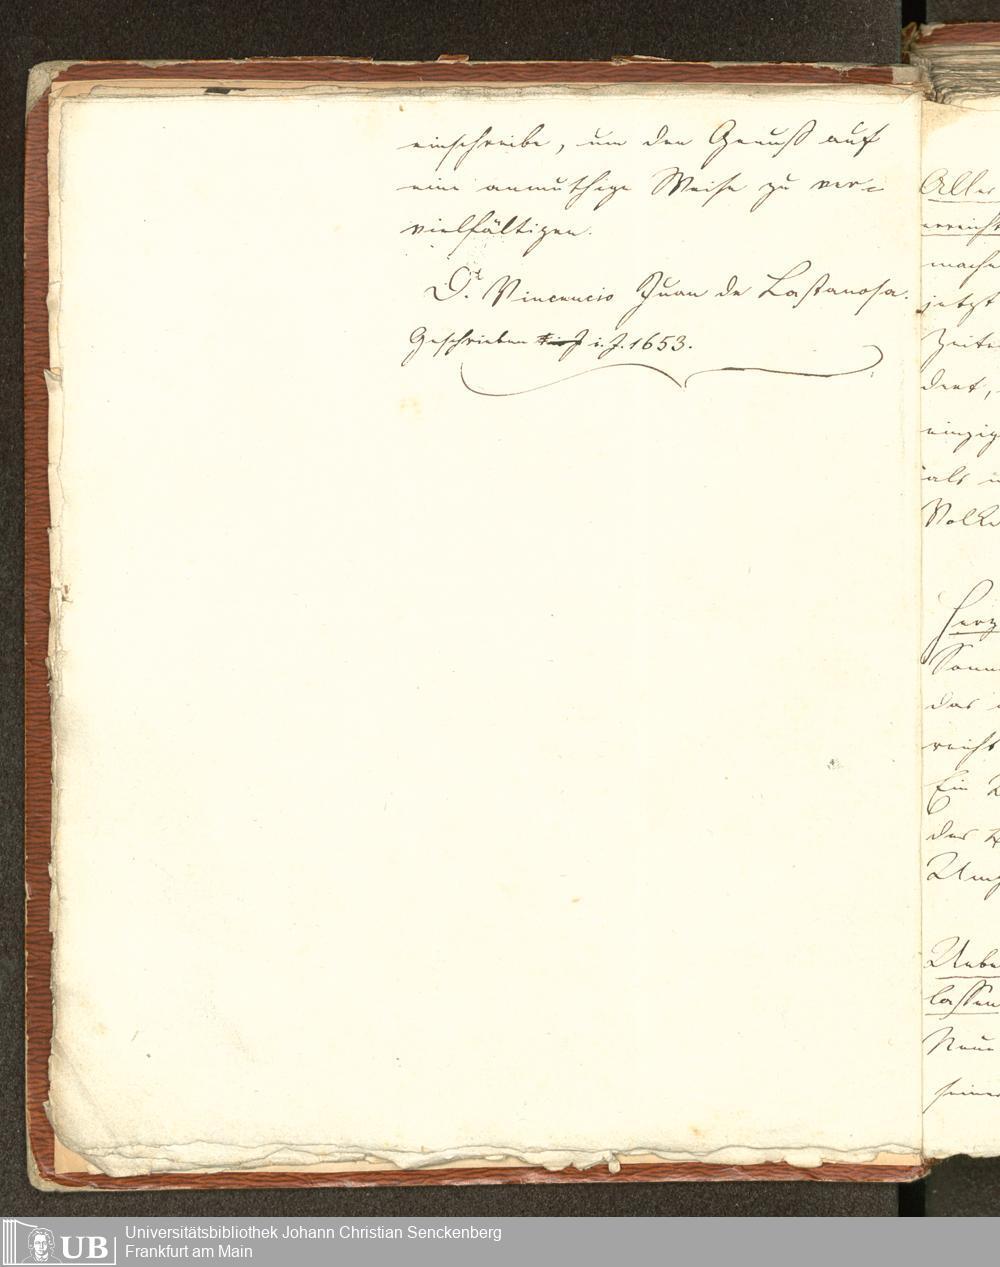 einschreibe, um den Genuß auf
eine anmuthige Weise zu ver-
vielfältigen.
Dt. Vincencio Juan de Lastanosa.
Geschrieben i. J. 1653.
Alles
erreicht
mache
jetzt
Zeite
dert,
einzig
als
Volke
Herz
Sonn
das
reicht
Ein
des
Neue
seiner
lassen
Universitätsbibliothek Johann Christian Senckenberg
Frankfurt am Main
UB